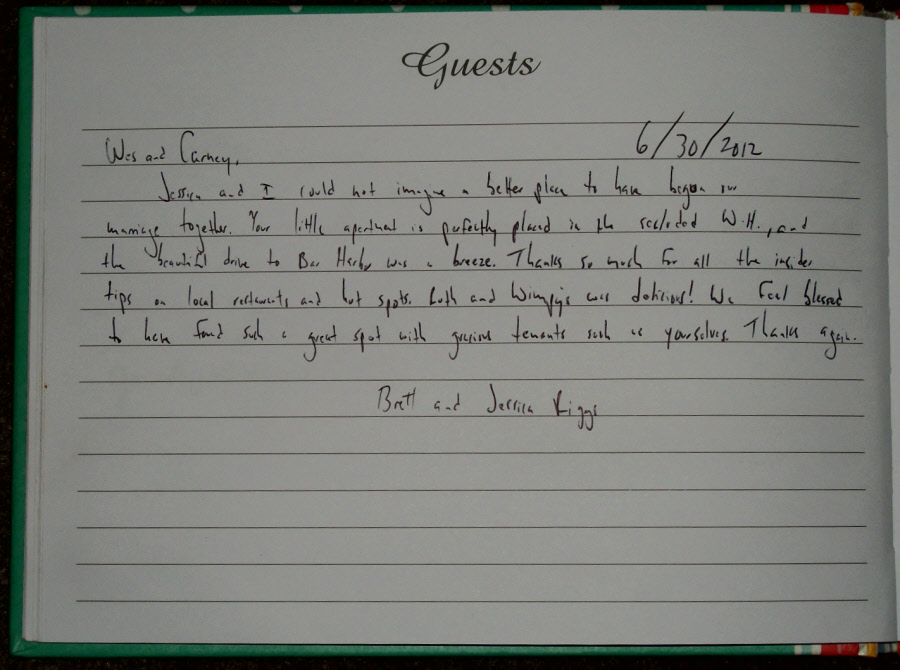 Guests
Wes and Carney, 6/30/2012
Jessica and I could not imagine a better place to have began our
marriage together. Your little apartment is perfectly placed in the secluded W.H., and
the beautiful drive to Bar Harbor was a breeze. Thanks so much for all the insider
tips on local restaurants and hot spots. and was delicious! We feel blessed
to have found such a great spot with gracious tenants such as yourselves. Thanks again.
Brett and Jessica